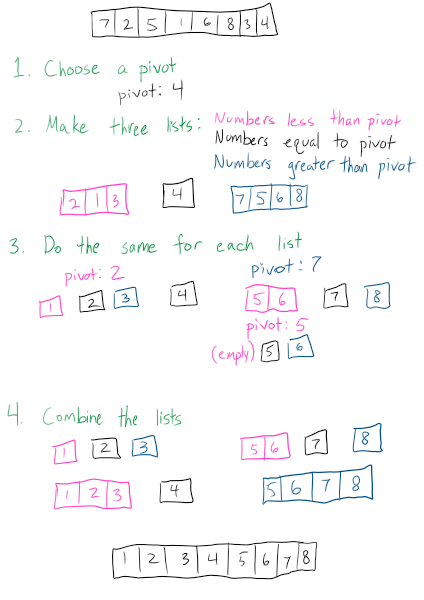 7 2 5 1 6 8 3 4
1. Choose a pivot
pivot: 4
2. Make three lists: Numbers less than pivot
Numbers equal to pivot
Numbers greater than pivot
2 1 3 4 7 5 6 8
3. Do the same for each list
pivot: 2 pivot: 7
1 2 3 4 5 6 7 8
pivot: 5
(empty) 5 6
4. Combine the lists
1 2 3 5 6 7 8
1 2 3 4 5 6 7 8
1 2 3 4 5 6 7 8